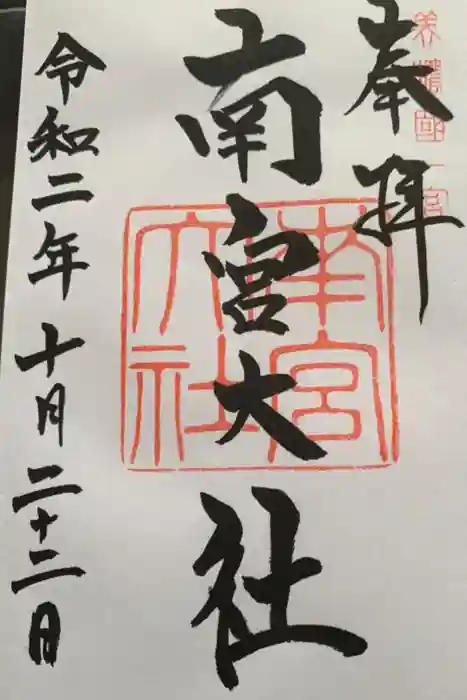 奉拝
美濃國一宮
南宮大社
南宮大社
令和二年十月二十二日